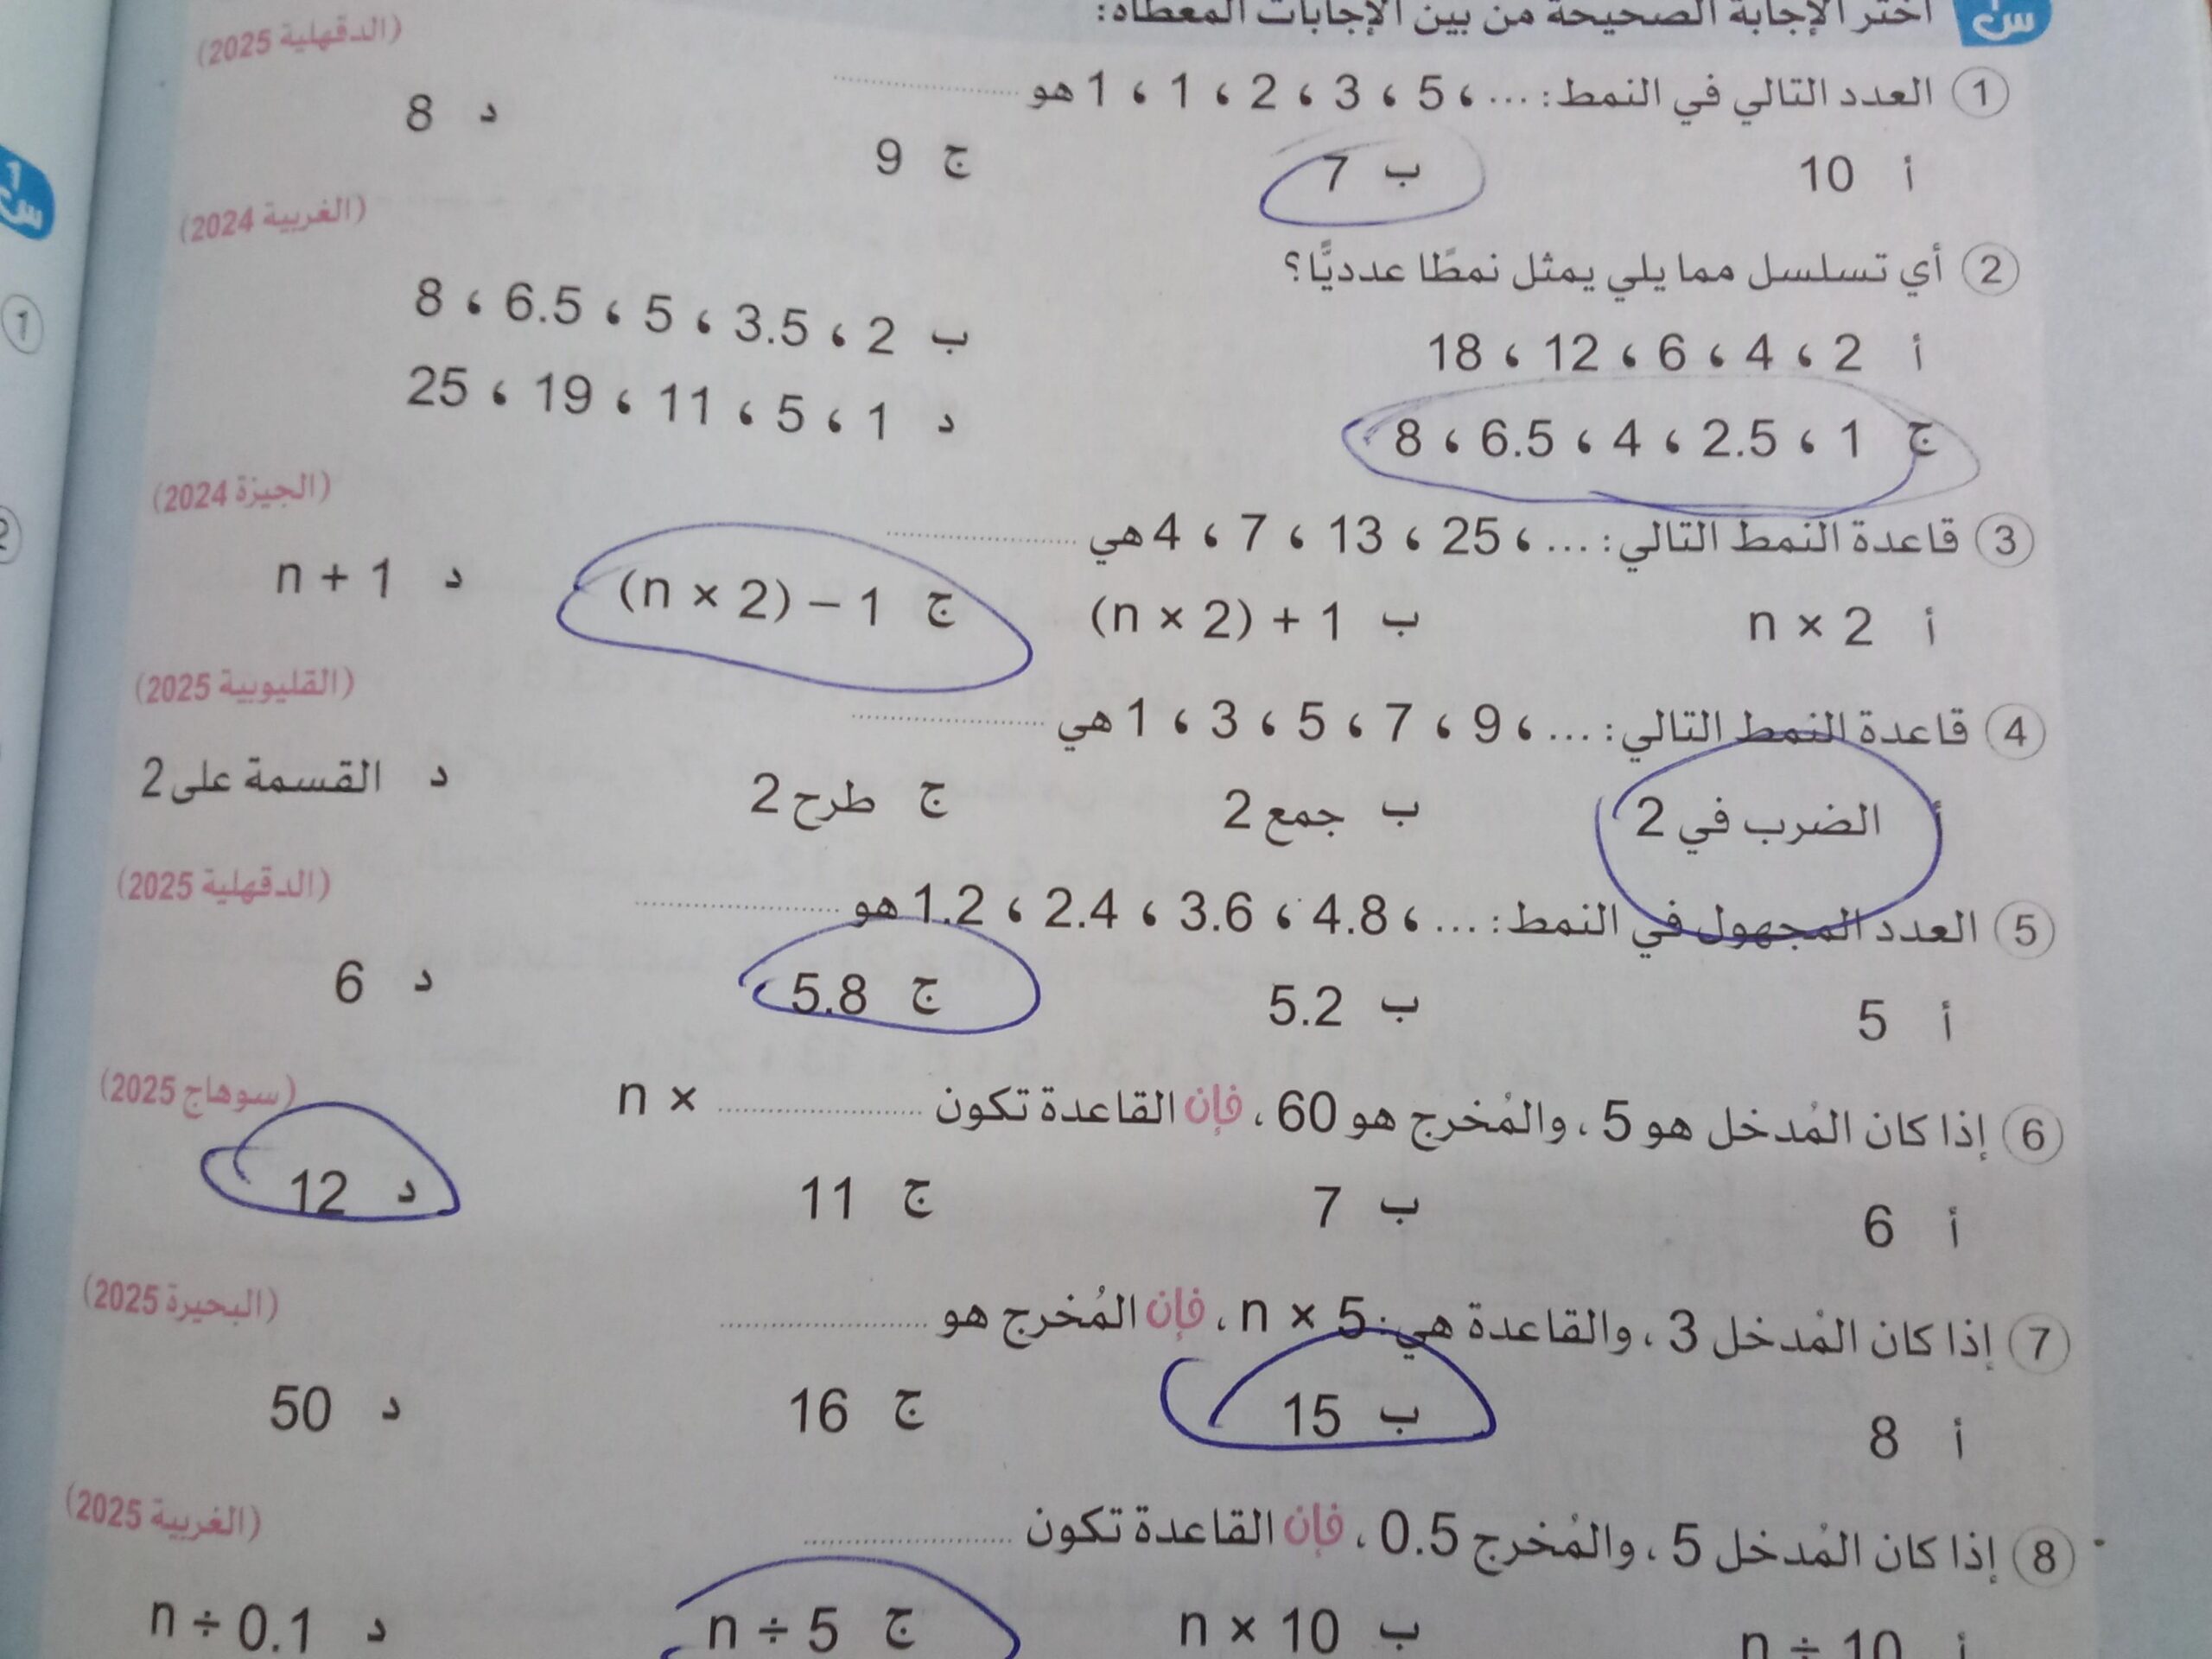 س١ اختر الإجابة الصحيحة من بين الإجابات المعطاة:
1 العدد التالي في النمط: ... ، 5 ، 3 ، 2 ، 1 ، 1 هو .......... (الدقهلية 2025)
أ 10 ب 7 ج 9 د 8
2 أي تسلسل مما يلي يمثل نمطًا عدديًّا؟ (الغربية 2024)
أ 2 ، 4 ، 6 ، 12 ، 18 ب 2 ، 3.5 ، 5 ، 6.5 ، 8
ج 1 ، 2.5 ، 4 ، 6.5 ، 8 د 1 ، 5 ، 11 ، 19 ، 25
3 قاعدة النمط التالي: ... ، 25 ، 13 ، 7 ، 4 هي .......... (الجيزة 2024)
أ n × 2 ب (n × 2) + 1 ج (n × 2) – 1 د n + 1
4 قاعدة النمط التالي: ... ، 9 ، 7 ، 5 ، 3 ، 1 هي .......... (القليوبية 2025)
أ الضرب في 2 ب جمع 2 ج طرح 2 د القسمة على 2
5 العدد المجهول في النمط: ... ، 4.8 ، 3.6 ، 2.4 ، 1.2 هو .......... (الدقهلية 2025)
أ 5 ب 5.2 ج 5.8 د 6
6 إذا كان المُدخل هو 5 ، والمُخرج هو 60 ، فإن القاعدة تكون .......... n × (سوهاج 2025)
أ 6 ب 7 ج 11 د 12
7 إذا كان المُدخل 3 ، والقاعدة هي: n × 5 ، فإن المُخرج هو .......... (البحيرة 2025)
أ 8 ب 15 ج 16 د 50
8 إذا كان المُدخل 5 ، والمُخرج 0.5 ، فإن القاعدة تكون .......... (الغربية 2025)
أ n ÷ 10 ب n × 10 ج n ÷ 5 د n ÷ 0.1
س١
1
2